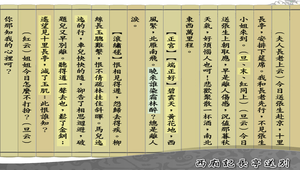 （夫人長老上云）今日送張生赴京，十里
長亭，安排下筵席。我和長老先行，不見張生
小姐來到。（旦、末、紅同上）（旦云）今日
送張生上朝取應，早是離人傷感，況值那暮秋
天氣，好煩惱人也呵！悲歡聚散一杯酒，南北
東西萬里程。
【正宮】【端正好】碧雲天，黃花地，西
風緊，北雁南飛。曉來誰染霜林醉？總是離人
淚。
【滾繡毬】恨相見得遲，怨歸去得疾。柳
絲長玉驄難繫，恨不倩疏林挂住斜暉。馬兒迍
迍的行，車兒快快的隨，卻告了相思迴避，破
題兒又早別離。聽得道一聲去也，鬆了金釧；
遙望見十里長亭，減了玉肌：此恨誰知？
（紅云）姐姐今日怎麼不打扮？（旦云）
你那知我的心裡呵？
西廂記長亭送別